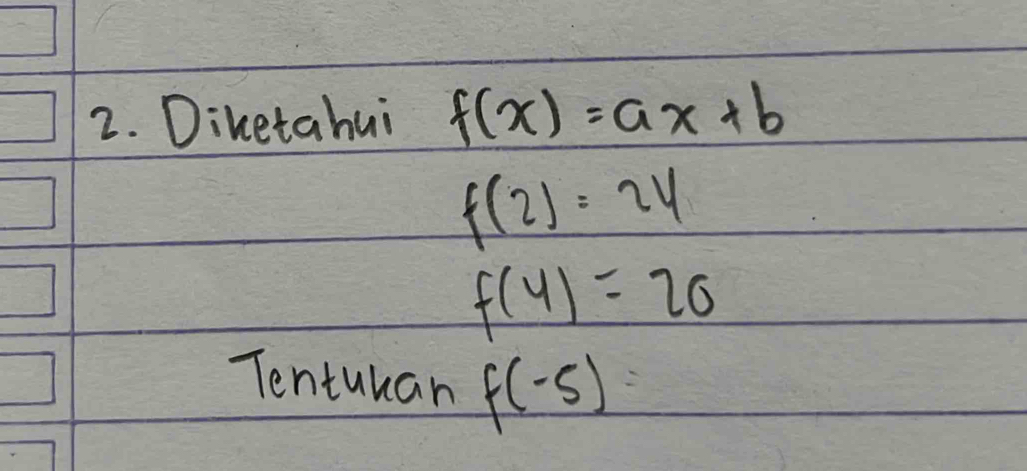 2. Diketahui f(x) = ax + b
f(2) = 24
f(4) = 20
Tentukan f(-5) =